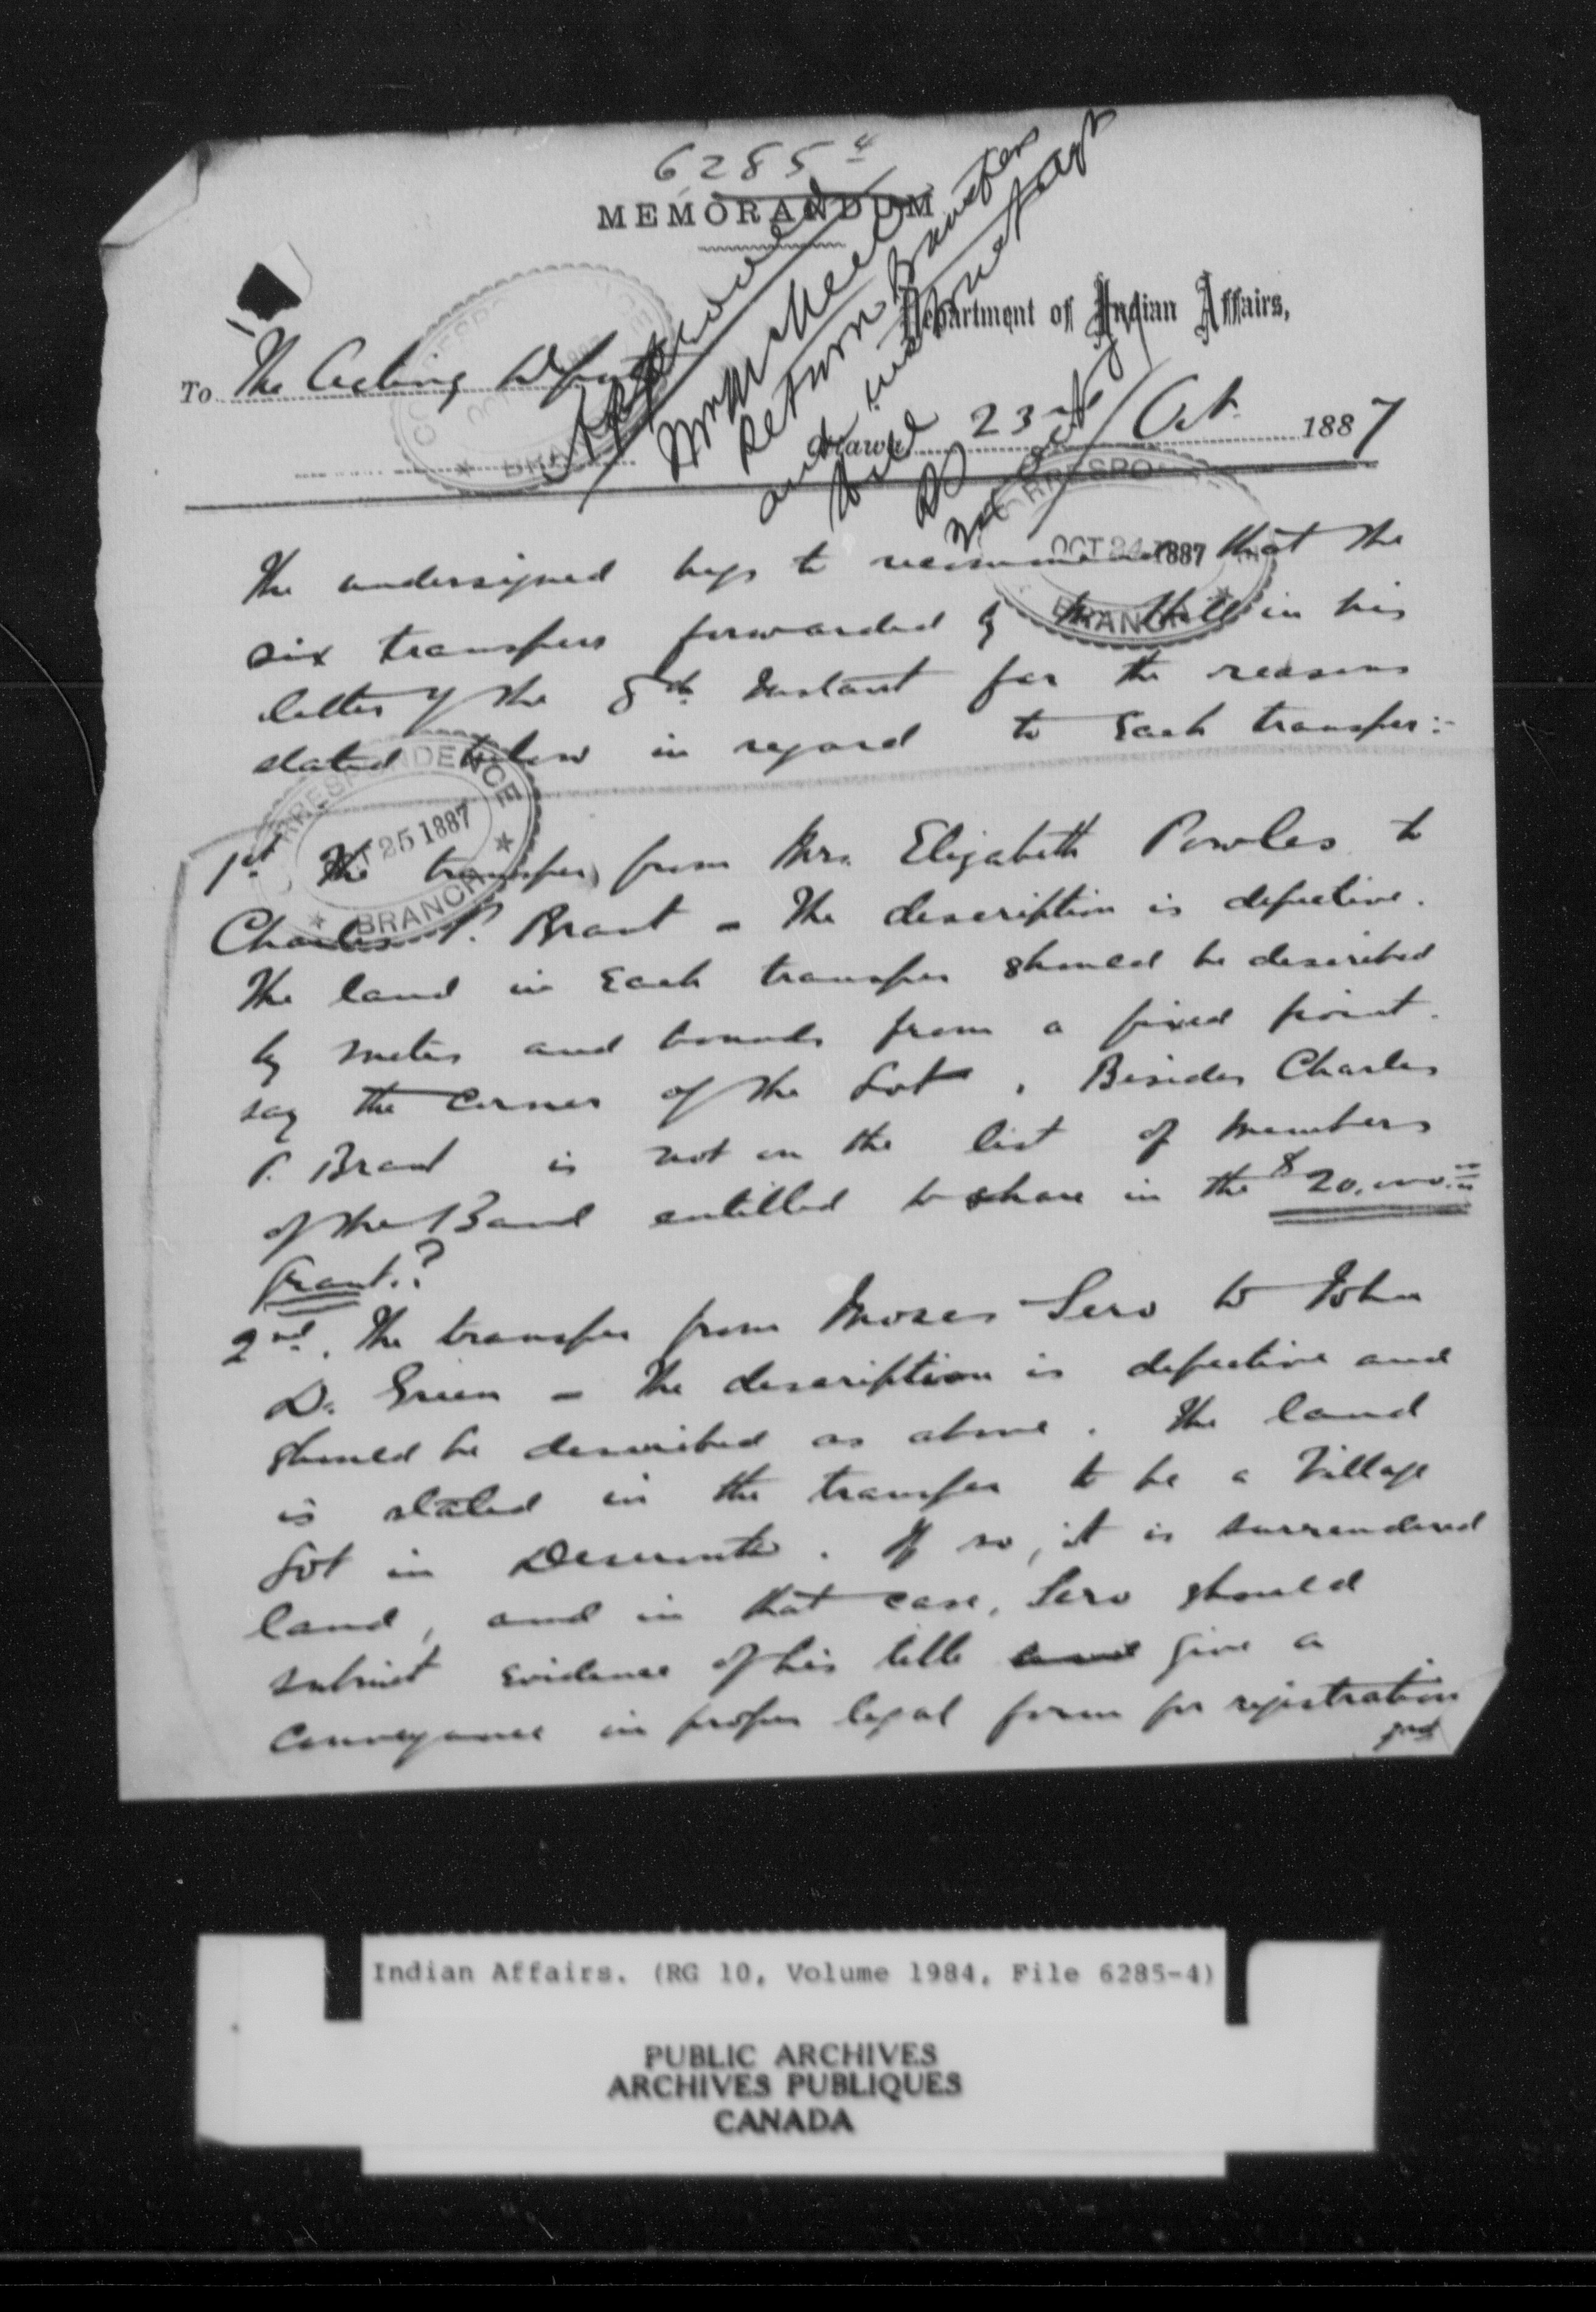 6285 4
MEMORANDUM
Department of Indian Affairs,
To The Acting Deputy
Approved
Return transfers
and instruct Agt
Ottawa 23rd Oct. 1887
OCT 24 1887
BRANCH
The undersigned begs to recommend that the
six transfers forwarded by Mr. Hill in his
letter of the 8th Instant for the reasons
stated below in regard to Each transfer:-
CORRESPONDENCE
OCT 25 1887
BRANCH
1st The transfer from Mrs. Elizabeth Powles to
Charles P. Brant - The description is defective.
The land in Each transfer should be described
by metes and bounds from a fixed point.
say the corner of the Lot. Besides Charles
P. Brant is not on the list of members
of the Band entitled to share in the $20,000.00
Grant.?
2nd. The transfer from Moses Sero to John
D. Green - The description is defective and
should be described as above. The land
is stated in the transfer to be a Village
Lot in Deseronto. If so, it is surrendered
land, and in that case, Sero should
submit Evidence of his title and give a
conveyance in proper legal form for registration
and
Indian Affairs. (RG 10, Volume 1984, File 6285-4)
PUBLIC ARCHIVES
ARCHIVES PUBLIQUES
CANADA